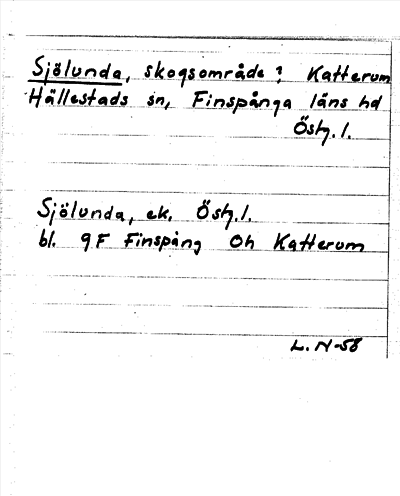 Sjölunda, skogsområde i Katterum
Hällestads sn, Finspånga läns hd
Östg. l.
Sjölunda, ek. Östg. l.
bl. 9F Finspång Oh Katterum
L. N-58